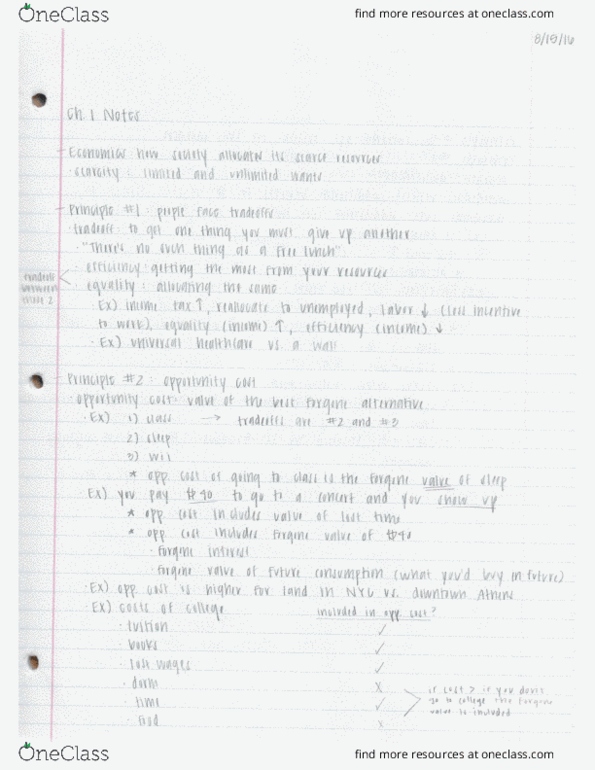 OneClass
find more resources at oneclass.com
8/18/16
Ch. 1 Notes
- Economics: how society allocates its scarce resources
· scarcity: limited and unlimited wants
- Principle #1: people face tradeoffs
· tradeoffs: to get one thing you must give up another
· "There's no such thing as a free lunch"
· efficiency: getting the most from your resources
tradeoff between these 2
· equality: allocating the same
Ex) income tax ↑, reallocate to unemployed, labor ↓ (less incentive
to work), equality (income) ↑, efficiency (income) ↓
· Ex) universal healthcare vs. a wall
- Principle #2: opportunity cost
· opportunity cost: value of the best forgone alternative
· Ex) 1) class → tradeoffs are #2 and #3
2) sleep
3) wii
* opp. cost of going to class is the forgone value of sleep
Ex) you pay $40 to go to a concert and you show up
* opp. cost includes value of lost time
* opp. cost includes forgone value of $40
· forgone interest
· forgone value of future consumption (what you'd buy in future)
· Ex) opp. cost is higher for land in NYC vs. downtown Athens
· Ex) costs of college included in opp. cost?
· tuition ✓
· books ✓
· lost wages ✓
· dorm X
· time ✓
· food X
if cost > if you don't
go to college the forgone
value is included
OneClass
find more resources at oneclass.com